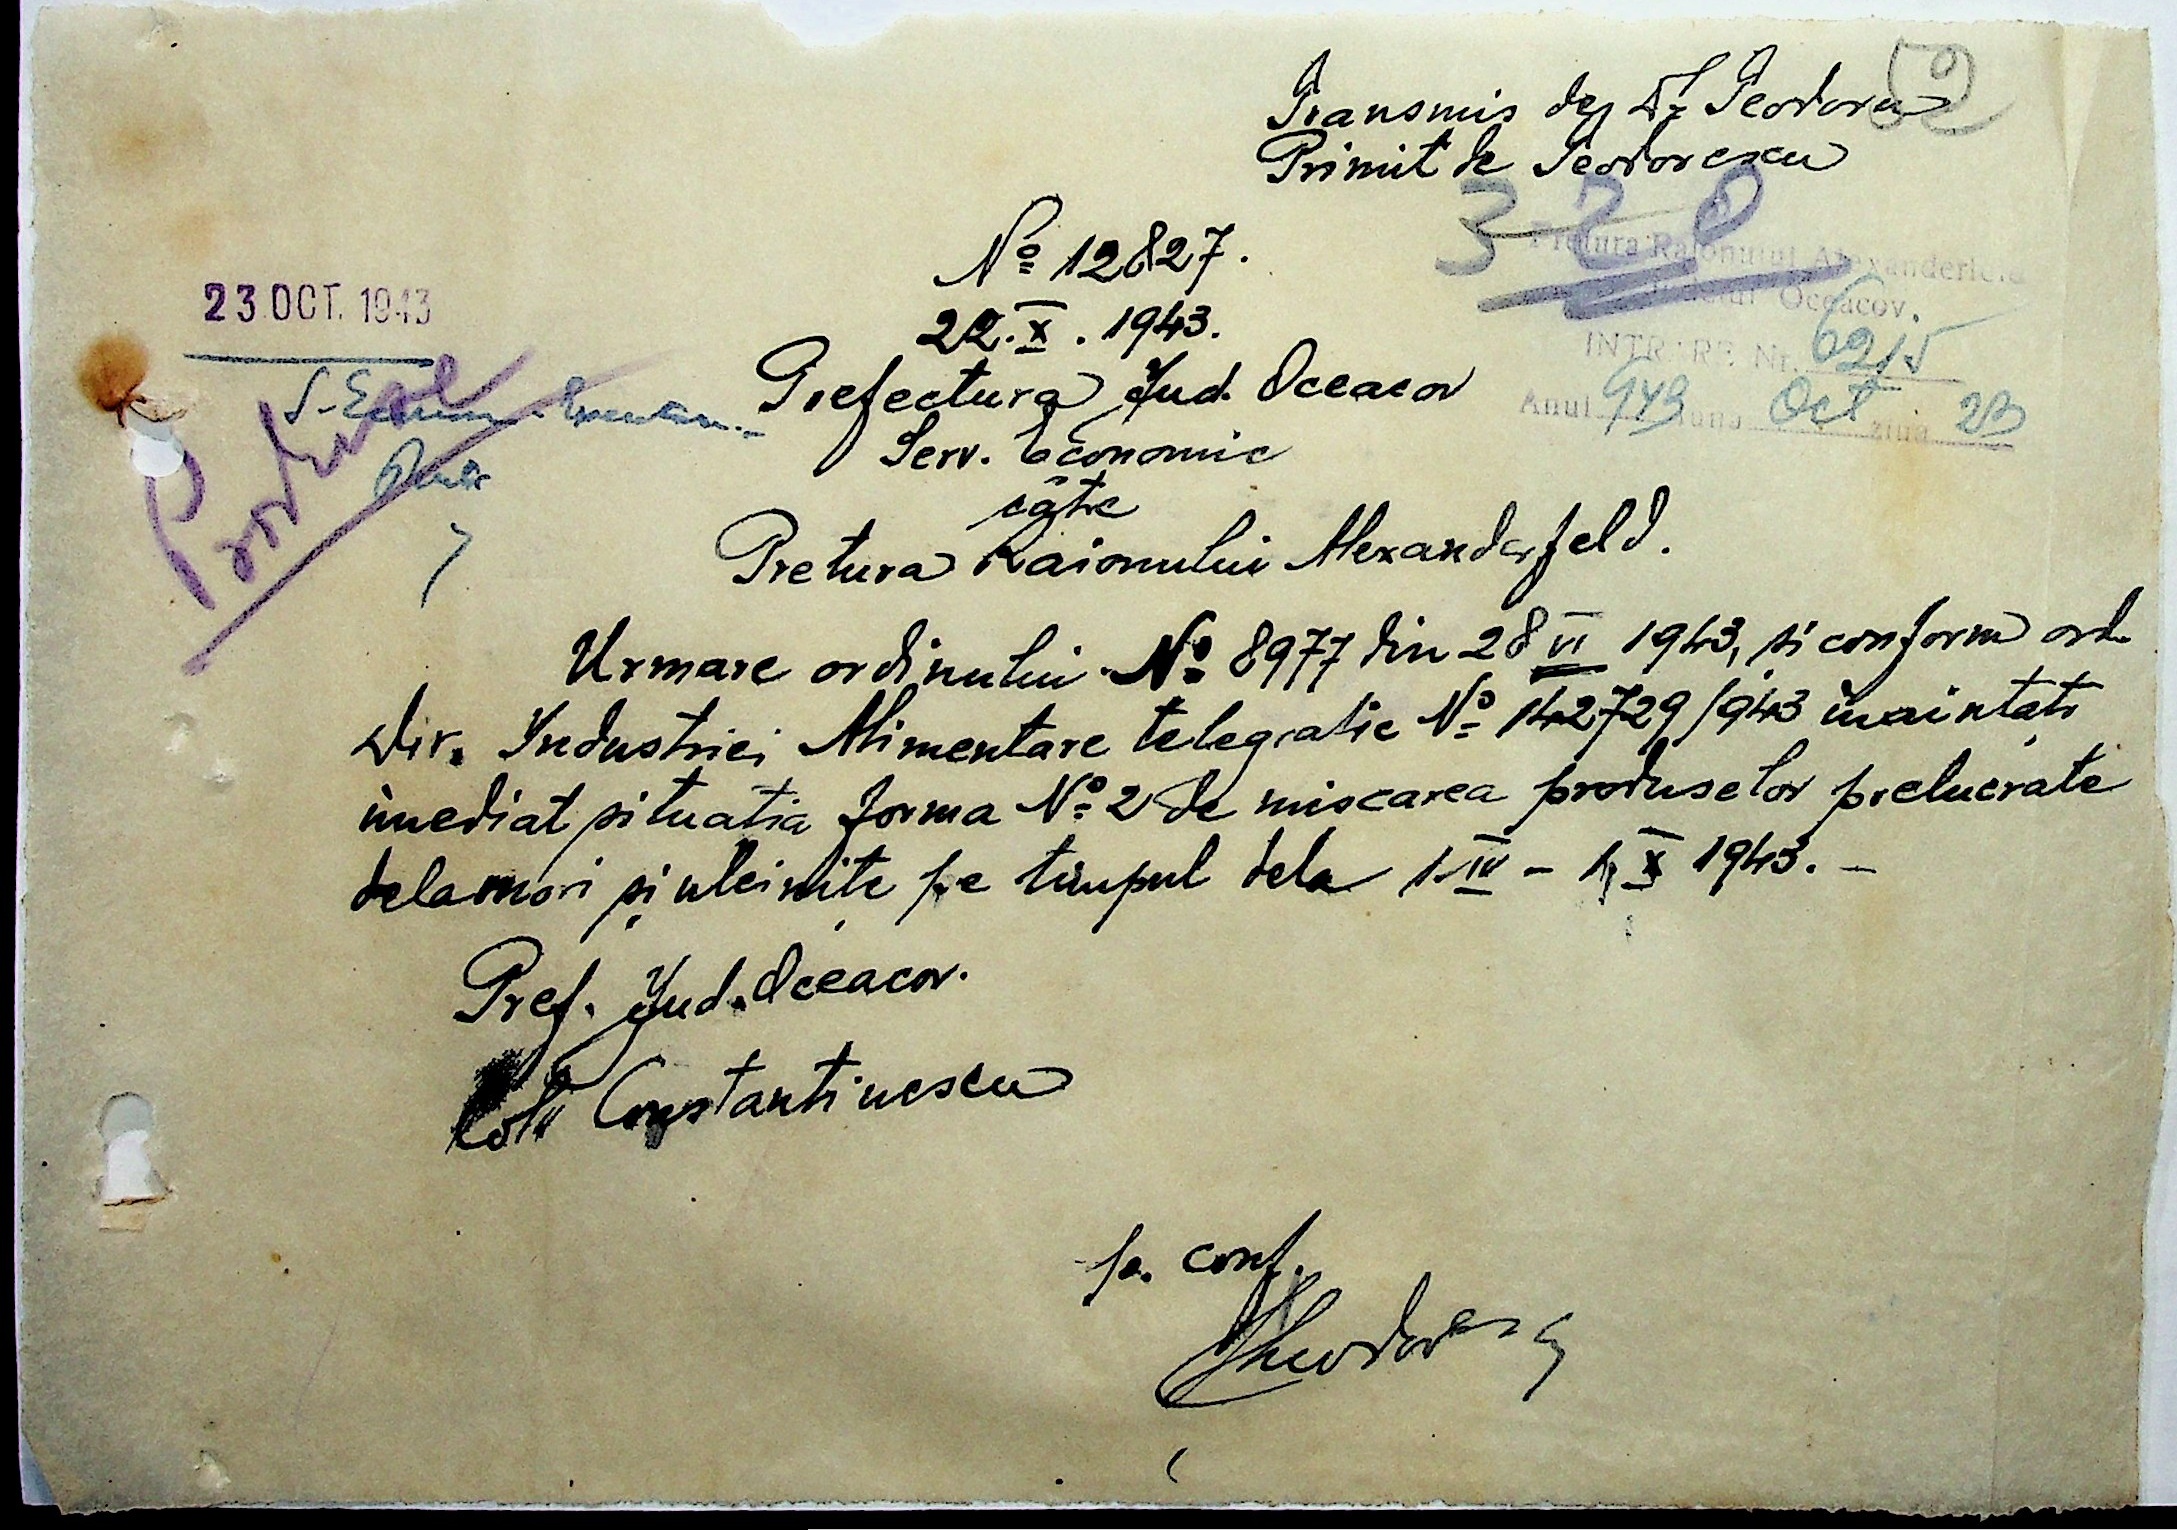 52
Transmis de Teodoru
Primit de Teodorescu
320
No 12827.
22.X.1943.
23 OCT. 1943
Pretura Raionului Alexanderfeld
Judetul Oceacov.
INTRARE Nr. 6215
Anul 943 luna Oct ziua 23
Produse
Prefectura Jud. Oceacov
Serv. Economic
către
Pretura Raionului Alexanderfeld.
Urmare ordinului No 8977 din 28 VI 1943, și conform ord.
Dir. Industriei Alimentare telegrafic No 142729/943 inaintați
imediat situatia forma No 2 de miscarea produselor prelucrate
dela mori și uleinițe pe timpul dela 1.IV - 1.X 1943. -
Pref. Jud. Oceacov.
Constantinescu
p. conf.